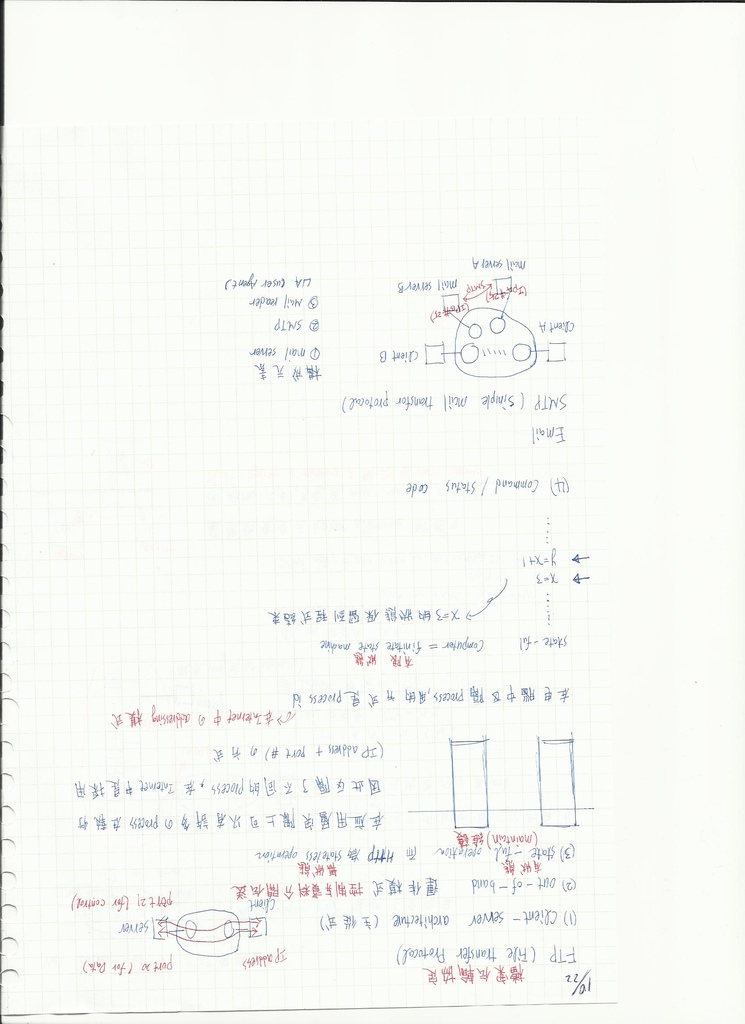 10/22
檔案傳輸協定
FTP (File transfer Protocol)
IP address
port 20 (for Data)
(1) Client-server architecture (主從式)
server
client
port 21 (for control)
(2) out-of-band 運作模式 控制與資料分開傳送
有狀態
無狀態
(3) state-ful operation 而 HTTP 為 stateless operation
(maintain) 維護
在應用層實際上可以有許多の process 在執行
因此區隔了不同的 process, 在 Internet 中是採用
(IP address + port #) の方式
在 Internet 中の addressing 模式
在電腦中區隔 process, 用的方式是 process id
有限 狀態
state-ful Computer = finitate state machine
......
x=3 的狀態保留到程式結束
x=3
y=x+1
......
(4) Command / status code
Email
SMTP (Simple mail transfer protocol)
構成元素
① mail server
② SMTP
③ Mail reader
UA (user Agent)
Client A
Client B
SMTP
mail server B
mail server A